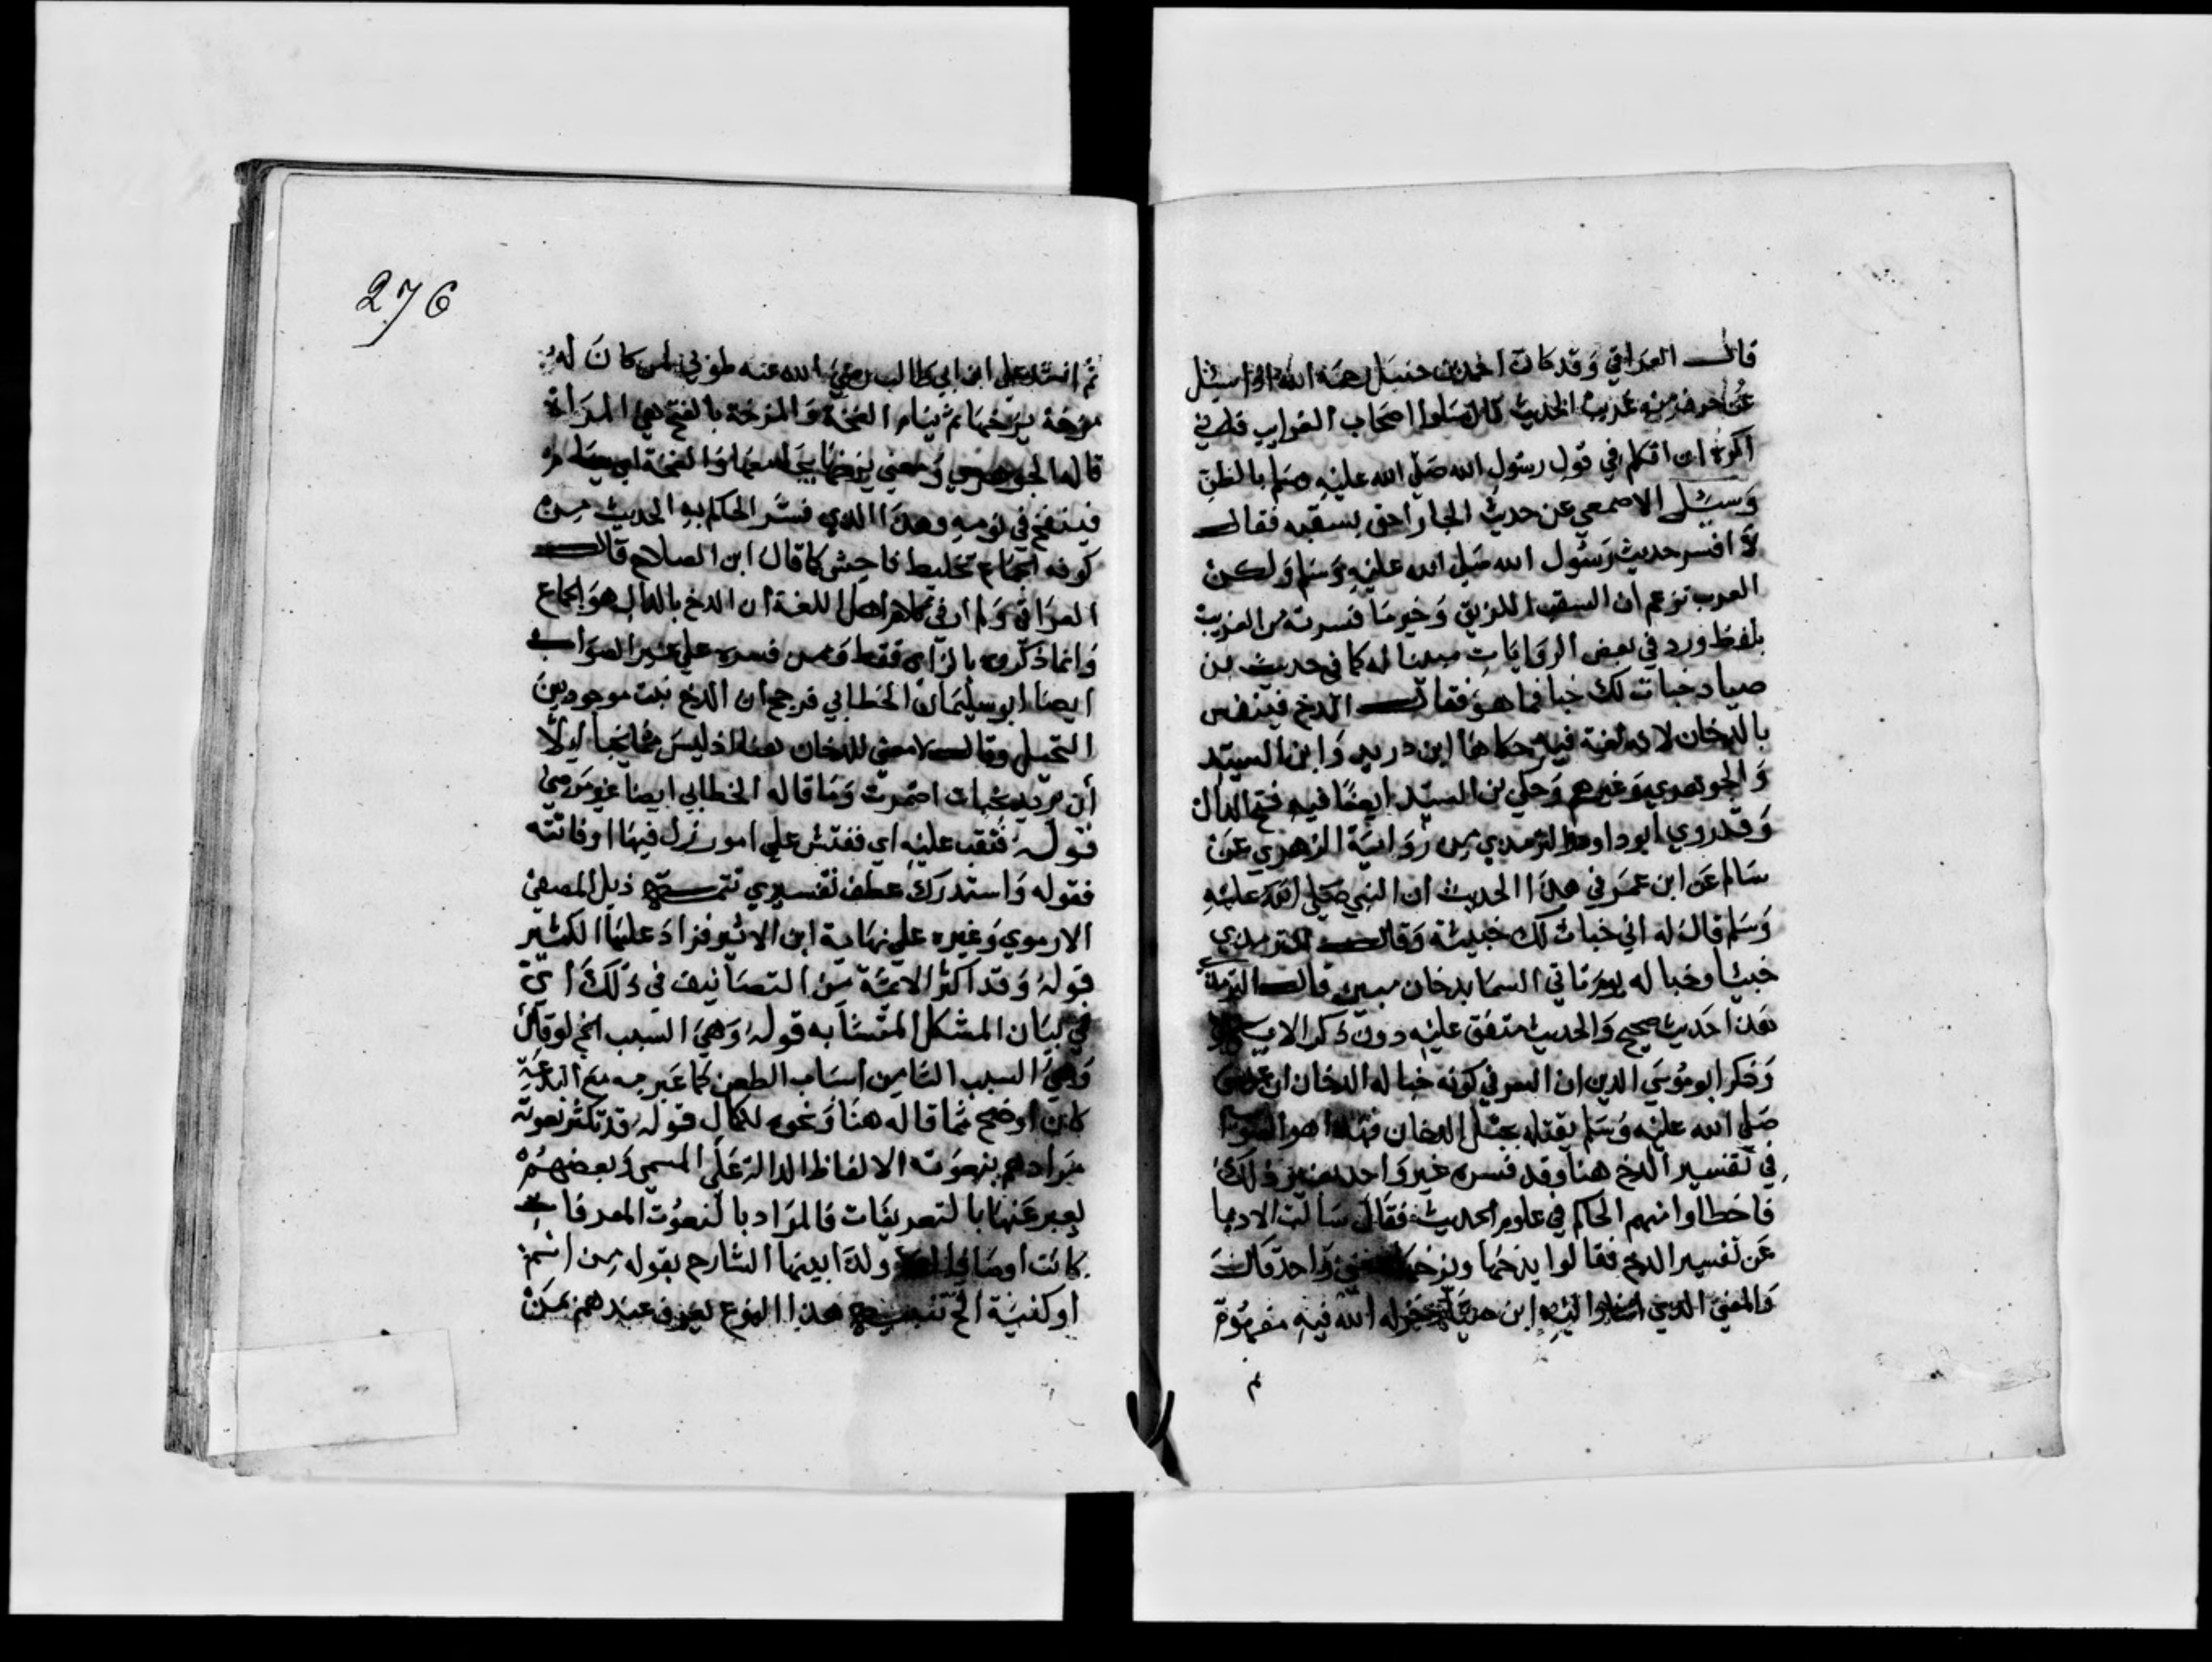 قال العراقي وقد كان احمد بن حنبل رحمه الله اذا سئل
عن حرف من غريب الحديث قال سلوا اصحاب الغرايب فاني
اكره ان اتكلم في قول رسول الله صلى الله عليه وسلم بالظن
وسئل الاصمعي عن حديث الجار احق بسقبه فقال
لا افسر حديث رسول الله صلى الله عليه وسلم ولكن
العرب تزعم ان السقب اللزيق وخير ما فسرته من الغريب
بلفظ ورد في بعض الروايات مبينا له كما في حديث بن
صياد خبات لك خبا فما هو فقال الدخ فينفس
بالدخان لانه لغة فيه حكاها ابن دريد وابن السيد
والجوهري وغيرهم وحكى بن السيد ايضا فيه فتح الدال
وقد روي ابو داود والترمذي من رواية الزهري عن
سالم عن ابن عمر في هذا الحديث ان النبي صلى الله عليه
وسلم قال له اني خبات لك خبيئة وقال الترمذي
خبيئا وخبا له يوم تاتي السما بدخان مبين قال الترمذي
هذا حديث صحيح والحديث متفق عليه دون ذكر الاية
وذكر ابو موسي المديني ان السر في كونه خبا له الدخان ان عيسى
صلى الله عليه وسلم يقتله بجبل الدخان فهذا هو الصواب
في تفسير الدخ هنا وقد فسره غير واحد بغير ذلك
فاخطاوا منهم الحاكم في علوم الحديث فقال سالت الادبا
عن تفسير الدخ فقالوا يدخها ويزخها بمعنى واحد قال
والمعنى الذي اشار اليه ابن صياد خذله الله فيه مفهوم
ثم
276
ثم انشد علي ابن ابي طالب رضي الله عنه طوبي لمن كان له
مزخة يزخها ثم ينام الفخة والمزخة بالفتح هي المرأة
قاله الجوهري ومعنى يزخها يجامعها والفخة ان ينام
فينفخ في نومه وهذا الذي فسر الحاكم به الحديث من
كونه الجماع تخليط فاحش كما قال ابن الصلاح قال
العراقي ولم ار في كلام اهل اللغة ان الدخ بالدال هو الجماع
وانما ذكروه بالزاي فقط وممن فسره علي غير الصواب
ايضا ابو سليمان الخطابي فرجح ان الدخ نبت موجود بين
النخيل وقال لا معنى للدخان هنا اذ ليس مما يخبا الا
ان يريد بخبات اضمرت وما قاله الخطابي ايضا غير مرضي
قوله فتعقب عليه اي ففتش علي امور زل فيها او فاتته
فقوله واستدرك عطف تفسيري تتمة ذيل الصفي
الارموي وغيره علي نهاية ابن الاثير فزاد عليها الكثير
قوله وقد اكثر الائمة من التصانيف في ذلك اي
في بيان المشكل المتشابه قوله وهي السبب الخ لو قال
وهي السبب الثامن اسباب الطعن كما عبر به مع البدعة
كان اوضح مما قاله هنا ونحوه للكمال قوله قد تكثر نعوته
مرادهم بنعوته الالفاظ الدالة على المسمي وبعضهم
يعبر عنها بالتعريفات فالمراد بالنعوت المعرفات
كانت اوصافا ولذا بينها الشارح بقوله من اسم
او كنية الخ تنبيه هذا النوع لعزف عند هم بمن